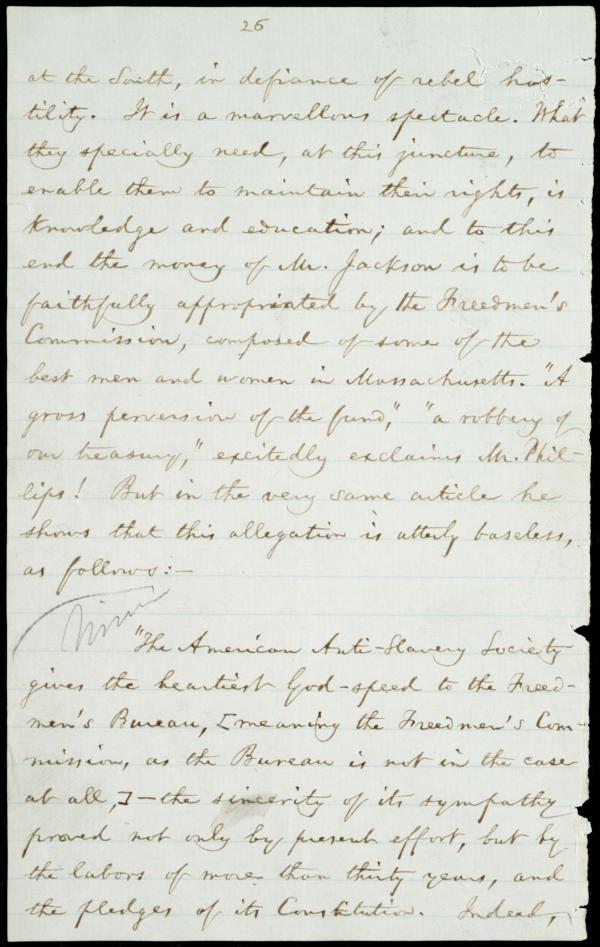 26
at the South, in defiance of rebel hos-
tility. It is a marvellous spectacle. What
they specially need, at this juncture, to
enable them to maintain their rights, is
knowledge and education; and to this
end the money of Mr. Jackson is to be
faithfully appropriated by the Freedmen's
Commission, composed of some of the
best men and women in Massachusetts. "A
gross perversion of the fund," "a robbery of
our treasury," excitedly exclaims Mr. Phil-
lips! But in the very same article he
shows that this allegation is utterly baseless,
as follows:—
"The American Anti-Slavery Society
gives the heartiest God-speed to the Freed-
men's Bureau, [meaning the Freedmen's Com-
mission, as the Bureau is not in the case
at all,]—the sincerity of its sympathy
proved not only by present effort, but by
the labors of more than thirty years, and
the pledges of its Constitution. Indeed,